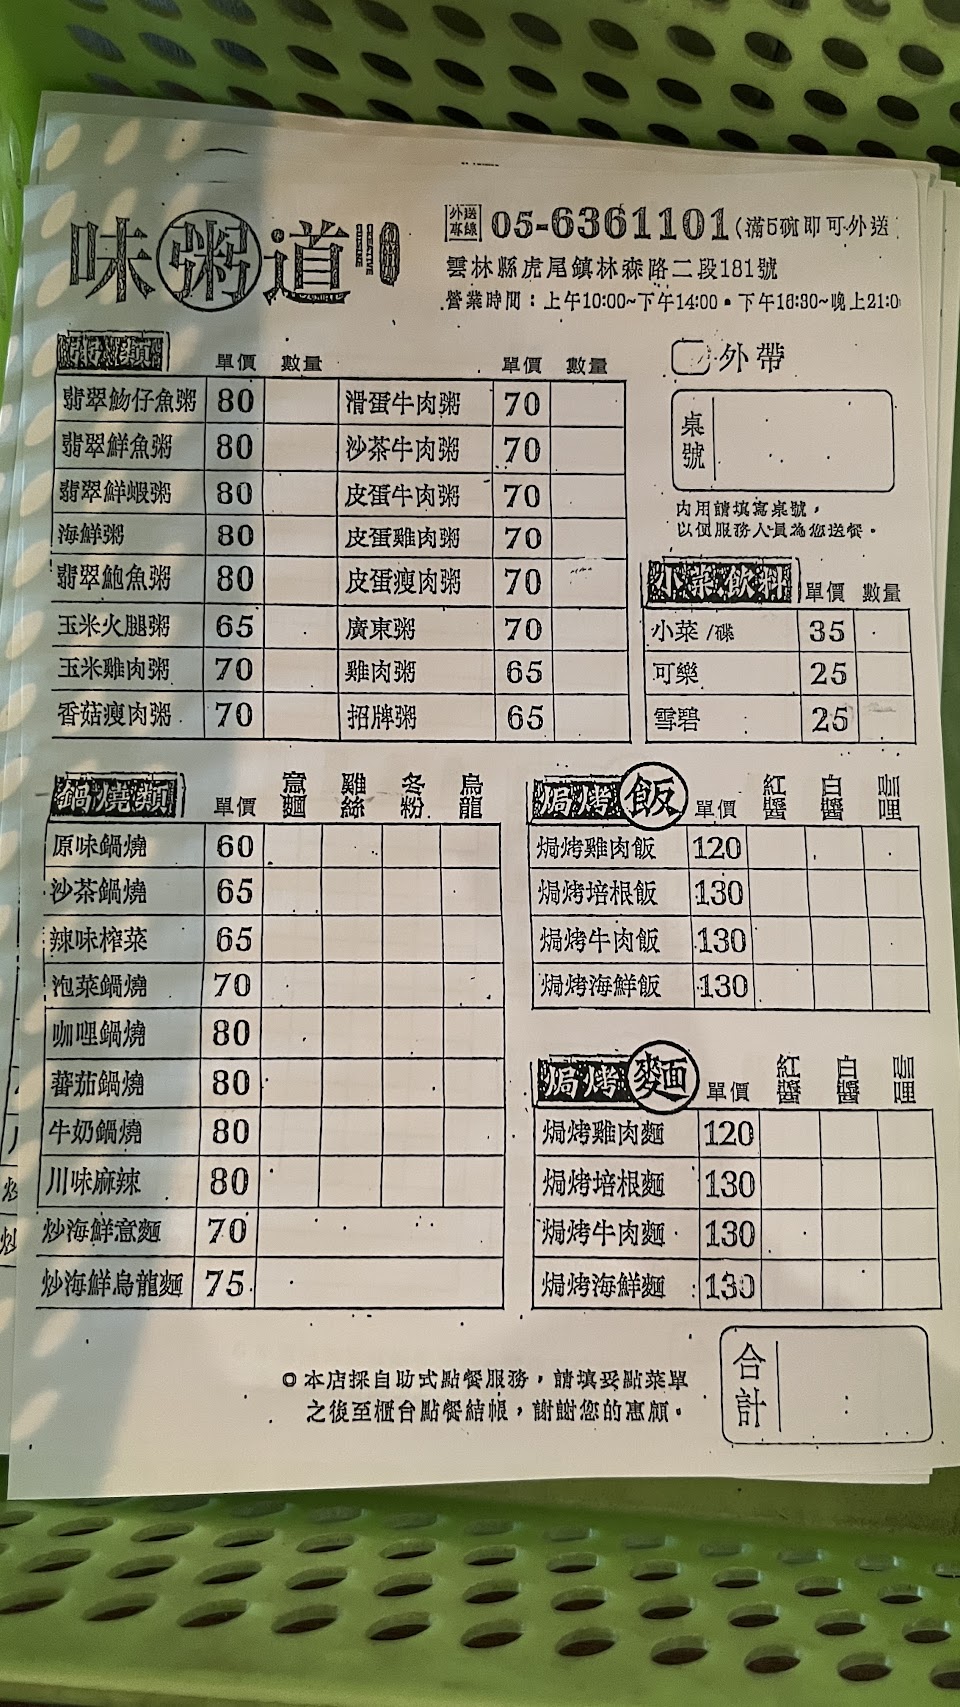 味粥道
外送專線 05-6361101(滿5碗即可外送
雲林縣虎尾鎮林森路二段181號
營業時間：上午10:00~下午14:00•下午16:30~晚上21:0
粥類 單價 數量 單價 數量
翡翠魩仔魚粥 80 滑蛋牛肉粥 70
翡翠鮮魚粥 80 沙茶牛肉粥 70
翡翠鮮蝦粥 80 皮蛋牛肉粥 70
海鮮粥 80 皮蛋雞肉粥 70
翡翠鮑魚粥 80 皮蛋瘦肉粥 70
玉米火腿粥 65 廣東粥 70
玉米雞肉粥 70 雞肉粥 65
香菇瘦肉粥 70 招牌粥 65
外帶
桌號
內用請填寫桌號，
以便服務人員為您送餐。
小菜飲料 單價 數量
小菜/碟 35
可樂 25
雪碧 25
鍋燒類 單價 意麵 雞絲 冬粉 烏龍
原味鍋燒 60
沙茶鍋燒 65
辣味榨菜 65
泡菜鍋燒 70
咖哩鍋燒 80
蕃茄鍋燒 80
牛奶鍋燒 80
川味麻辣 80
炒海鮮意麵 70
炒海鮮烏龍麵 75
焗烤飯 單價 紅醬 白醬 咖哩
焗烤雞肉飯 120
焗烤培根飯 130
焗烤牛肉飯 130
焗烤海鮮飯 130
焗烤麵 單價 紅醬 白醬 咖哩
焗烤雞肉麵 120
焗烤培根麵 130
焗烤牛肉麵 130
焗烤海鮮麵 130
合計
◎本店採自助式點餐服務，請填妥點菜單
之後至櫃台點餐結帳，謝謝您的惠顧。